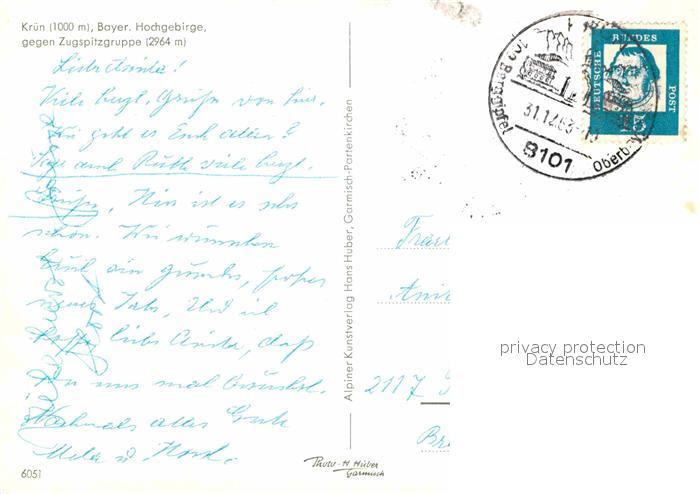 Krün (1000 m), Bayer. Hochgebirge,
gegen Zugspitzgruppe (2964 m)
Liebe Anita!
Viele herzl. Grüße von hier.
Wie geht es Euch allen?
Sage auch Ruth viele herzl.
Grüße. Hier ist es sehr
schön. Wir wünschen
Euch ein gutes, frohes
neues Jahr. Und ich
hoffe liebe Anita, daß
Du uns mal besuchst.
Nochmals alles Gute
u. Horst.
6051
Alpiner Kunstverlag Hans Huber, Garmisch-Partenkirchen
Photo-H. Huber
Garmisch
31.12.63
8101
Oberbay
DEUTSCHE
BUNDES
POST
15
2117
privacy protection
Datenschutz